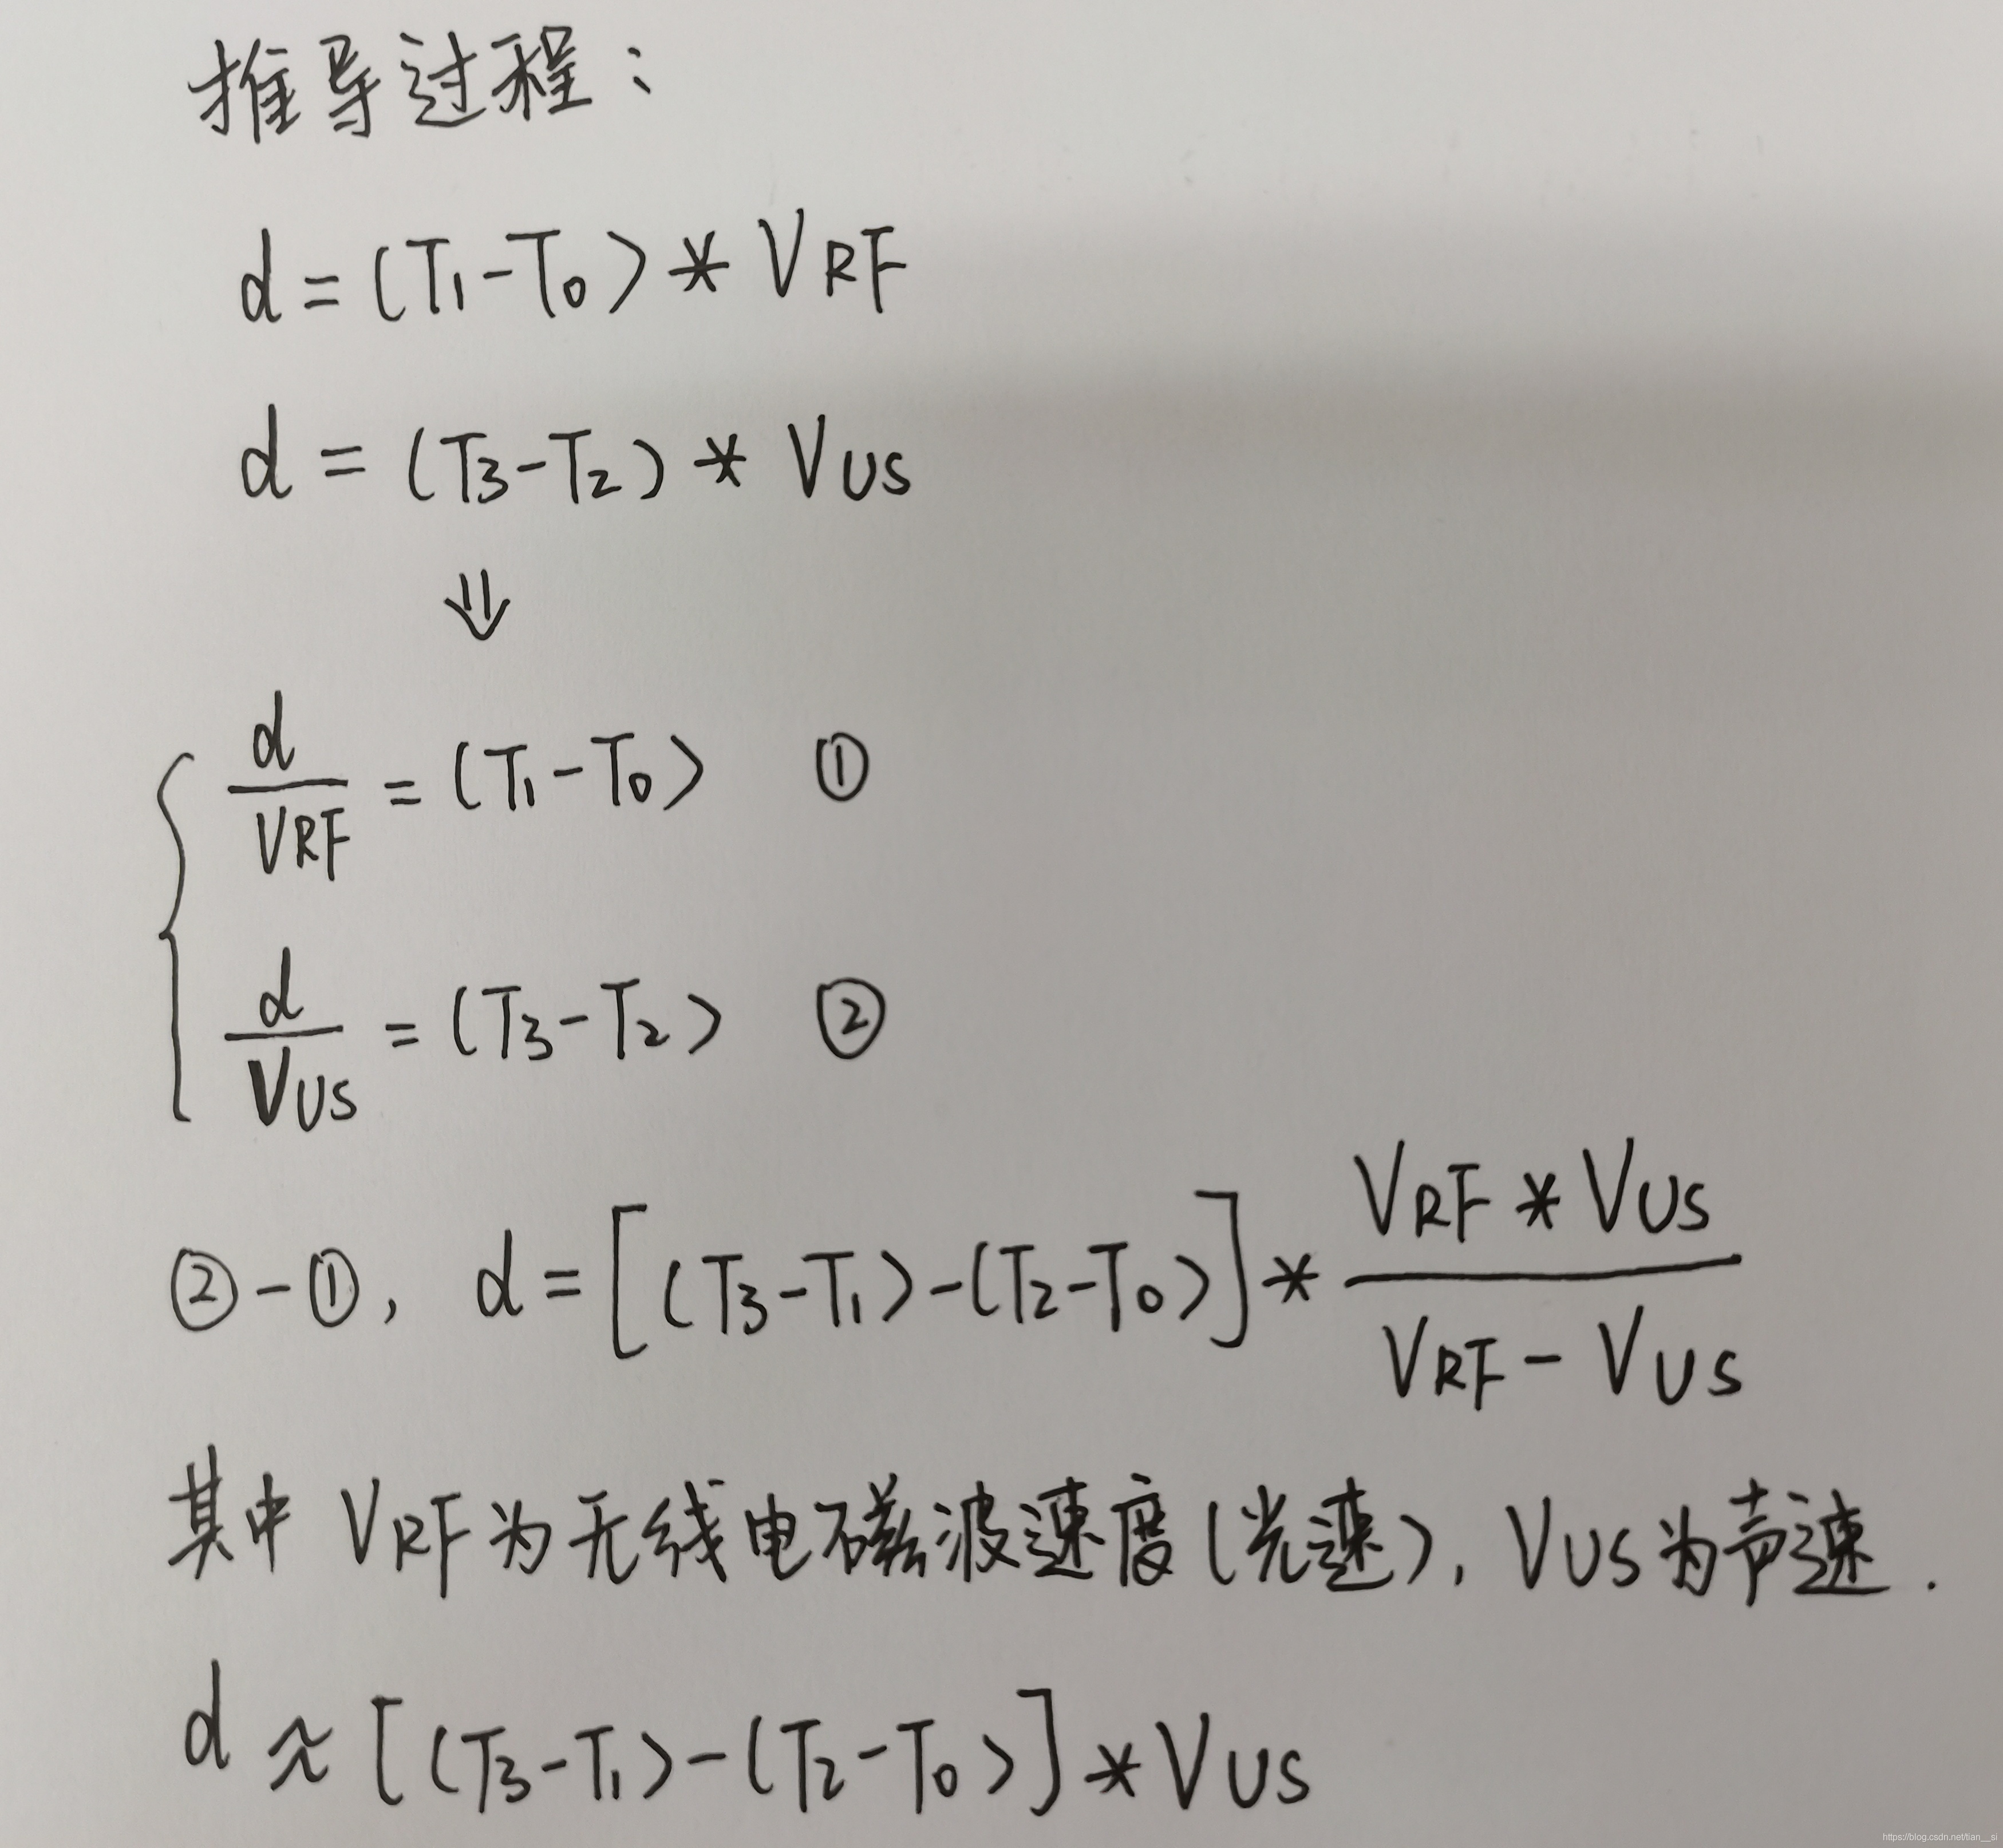 推导过程：
d = (T₁-T₀) * VRF
d = (T₃-T₂) * VUS
⇓
d/VRF = (T₁-T₀) ①
d/VUS = (T₃-T₂) ②
②-①, d = [(T₃-T₁)-(T₂-T₀)] * (VRF * VUS)/(VRF - VUS)
其中 VRF为无线电磁波速度(光速), VUS为声速.
d ≈ [(T₃-T₁)-(T₂-T₀)] * VUS
https://blog.csdn.net/tian__si